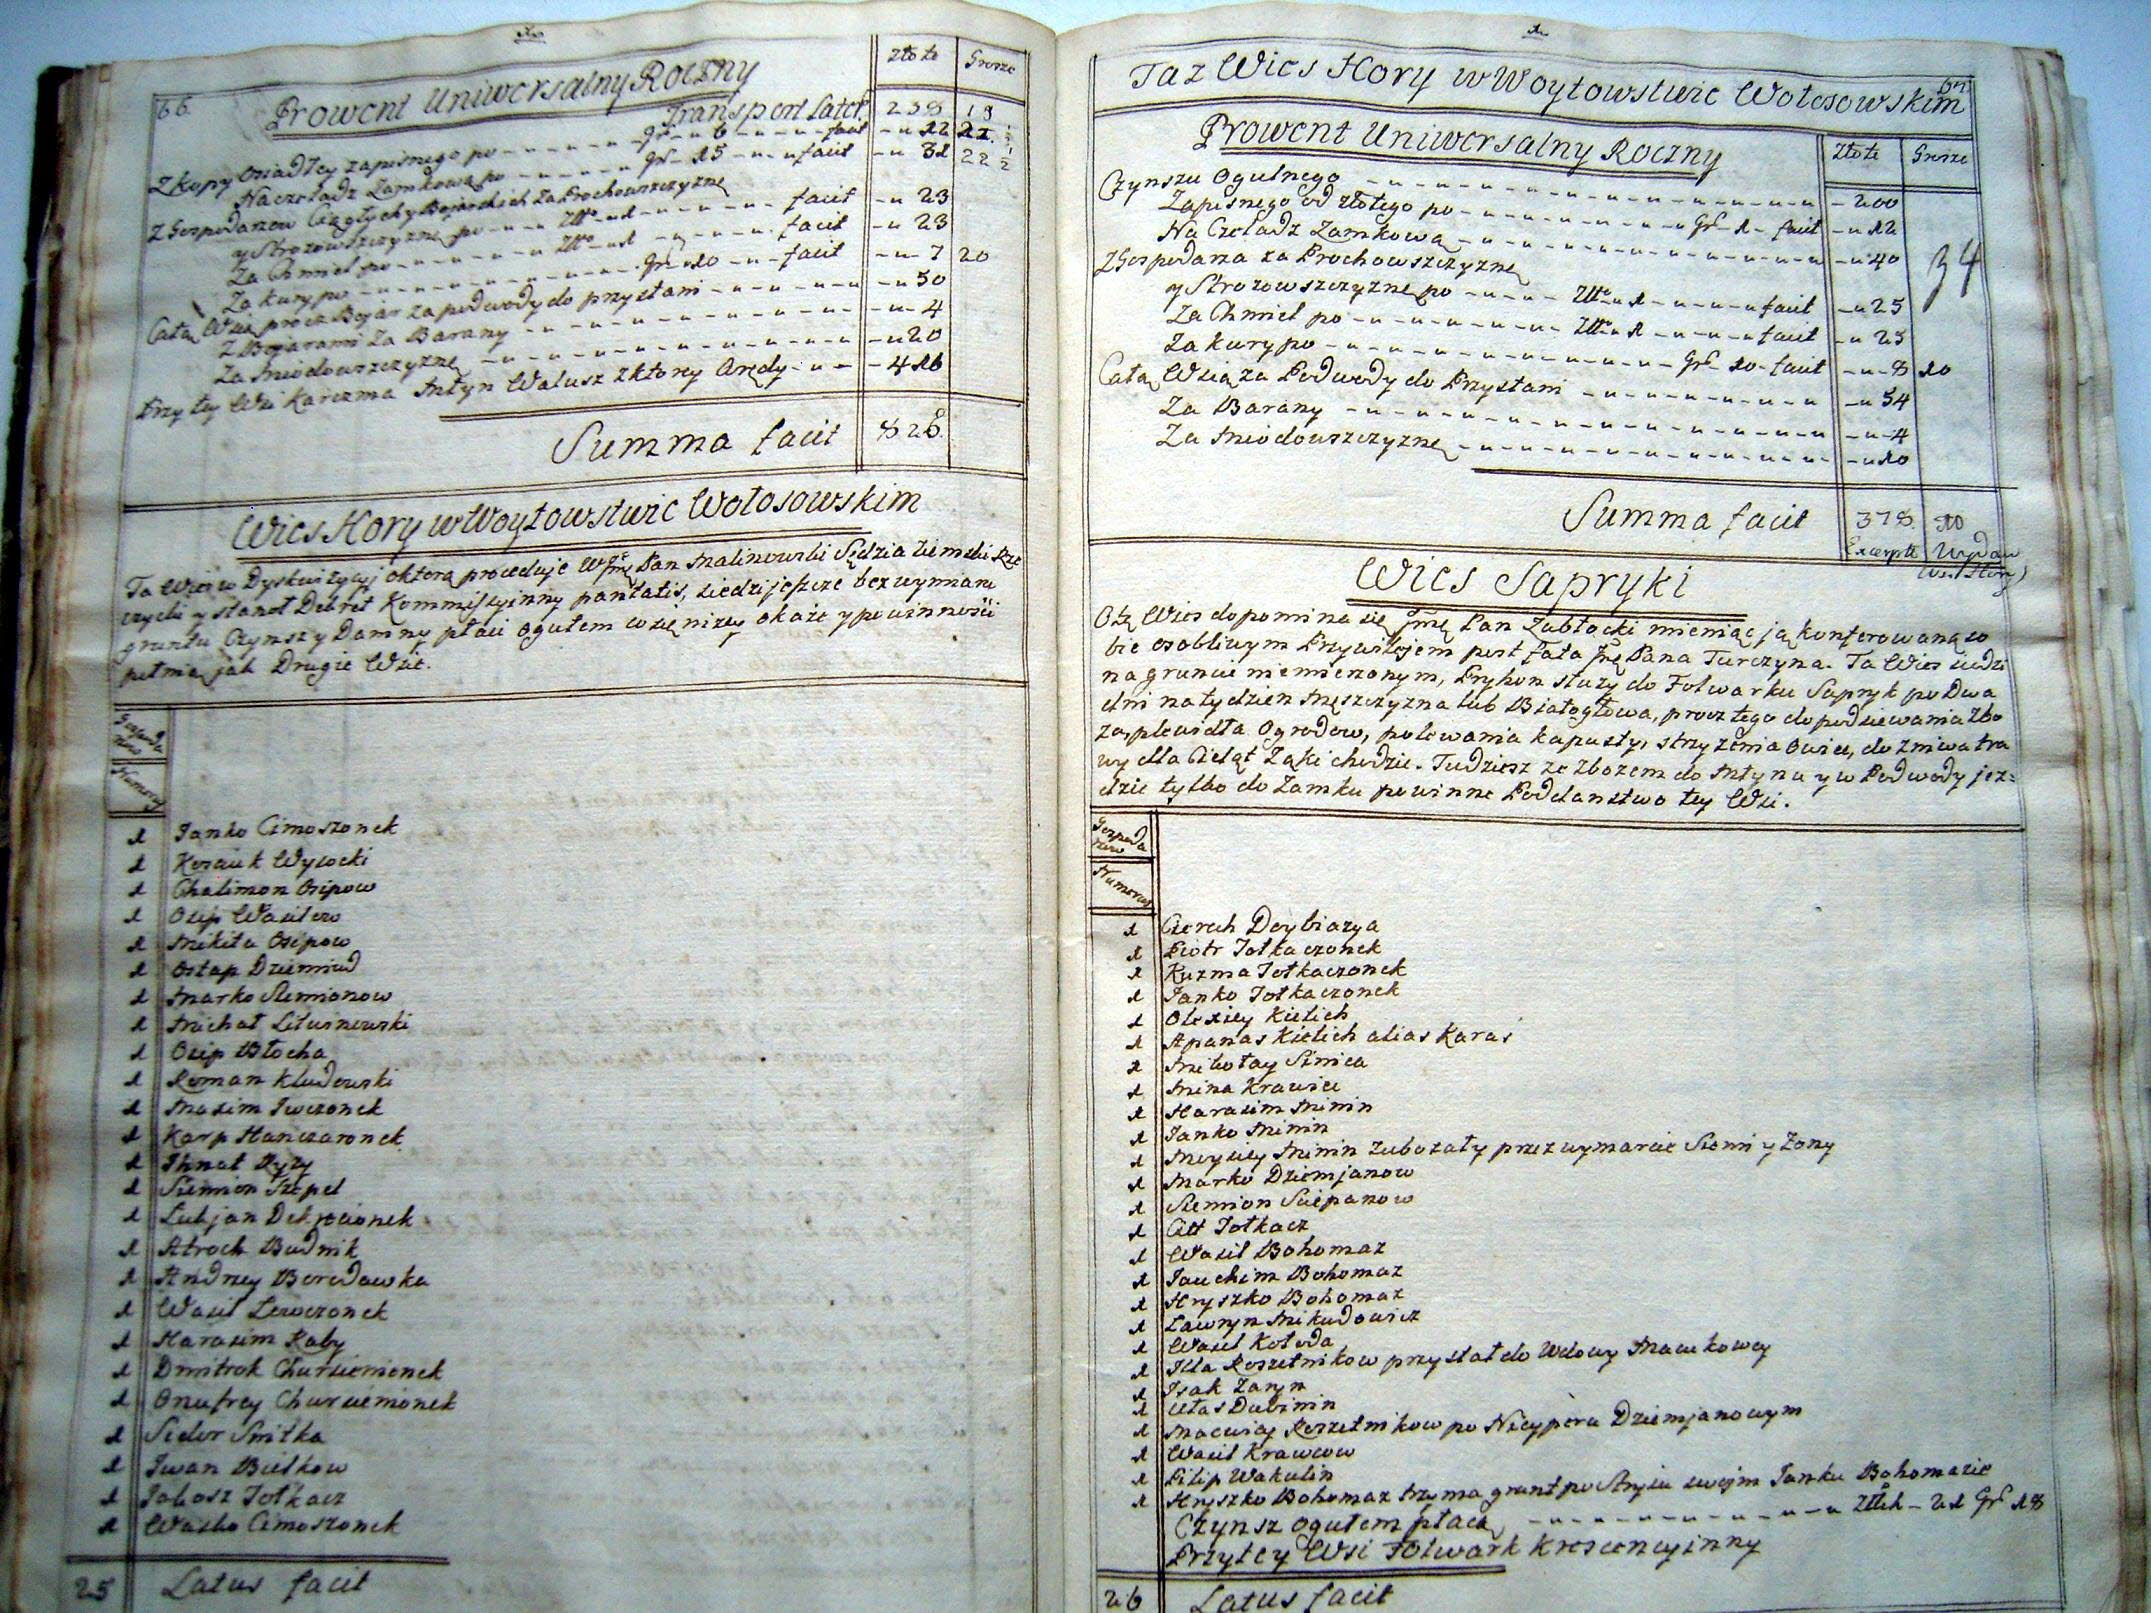 66.
Prowent Uniwersalny Roczny
Złote Grosze
Transport Later. 238 19
Z kopy osiadłey zapisnego po gr. 6 facit 12 21 ½
Na czeladz Zamkową po gr. 15 facit 31 22 ½
Z Gospodarzow Ciągłych y Bojarskich za Prochowszczyznę
y Strozowszczyznę po Złł. 1 facit 23
Za Chmiel po Złł. 1 facit 23
Za kury po gr. 10 facit 7 20
Całą Wsią procz Bojar za podwody do przystani 50
Z Bojarami Za Barany 4
Za Miodowszczyznę 20
Przy tey Wsi Karczma Młyn Walusz z ktorey Arędy 416
Summa facit 828.
Wies Hory w Woytowstwie Wołosowskim
Ta Wies w Dyskwizycyi o ktorą proceduje Pan Malinowski Sędzia Ziemski
y stanoł Dekret Kommissyinny siedzi jeszcze bez wymiaru
gruntu Czynsz y Daninę płaci ogułem co się nizey okaze y powinnosci
pełnią jak Drugie Wsie.
Gospodarzow
Numerus
1 Janko Cimoszonek
1 Kosciuk Wysocki
1 Chalimon Osipow
1 Osip Wasilew
1 Mikita Osipow
1 Ostap Dziemid
1 Marko Siemionow
1 Michał Lituinowski
1 Osip Błocha
1 Roman Kludowski
1 Maxim Iwczonek
1 Karp Hanczaronek
1 Ihnat Ryzy
1 Siemion Szepel
1 Lukjan
1 Atroch Budnik
1 Andrzey Borodawka
1 Wasil Lewczonek
1 Harasim Raby
1 Dmitrok Chursiemionek
1 Onufrey Chursiemionek
1 Sidor Smitka
1 Iwan Bulkow
1 Jakosz Tołkacz
1 Wasko Cimoszonek
25 Latus facit
67.
Taz Wies Hory w Woytowstwie Wołosowskim
Prowent Uniwersalny Roczny
Złote Grosze
Czynszu Ogulnego 200
Zapisnego od złotego po gr. 1 facit 12
Na Czeladz Zamkową 40
34
Z Gospodarza za Prochowszczyznę
y Strozowszczyznę po Złł. 1 facit 25
Za Chmiel po Złł. 1 facit 25
Za kury po gr. 10 facit 8 10
Całą Wsią za Podwody do Przystani 54
Za Barany 4
Za Miodowszczyznę 10
Summa facit 378. 10
Excerpt Wydan
Wsi Hory
Wies Sapryki
O tę Wies dopomina się Jmę Pan Zabłocki mieniąc ją konferowaną so
bie osobliwym Przywilejem post fata Jmę Pana Turczyna. Ta Wies siedzi
na gruncie niemierzonym, Pryhon słuzy do Folwarku Sapryk po Dwa
dni na tydzien Męszczyzna lub Białogłowa, procz tego do podsiewania zbo
za, plewidła Ogrodow, polewania kapusty, strzyzenia owiec, do zniwa tra
wy dla Cieląt Ząki chodzic. Tudziesz ze zbozem do Młyna y w Podwody jez=
dzic tylko do Zamku powinne Poddanstwo tey Wsi.
Gospodarzow
Numerus
1 Cierech Doybiazya
1 Piotr Tołkaczonek
1 Kuzma Tołkaczonek
1 Janko Tołkaczonek
1 Olexiey Kielich
1 Apanas Kielich alias Karas
1 Mikołay Sinica
1 Mina Krawiec
1 Harasim Minin
1 Janko Minin
1 Moysiey Minin zubozały przez wymarcie Siemi y Zony
1 Marko Dziemjanow
1 Siemion Sciepanow
1 Citt Tołkacz
1 Wasil Bohomaz
1 Jauchim Bohomaz
1 Hryszko Bohomaz
1 Ławryn Mikudowicz
1 Wasil Kołoda
1 Illa Reszetnikow przystał do Wdowy Maciukowey
1 Isak Zaryn
1 Ułas Dubinin
1 Maciey Reszetnikow po Nicyporu Dziemjanowym
1 Wasil Krawcow
1 Filip Wakulin
1 Hryszko Bohomaz trzyma grunt po Stryiu swoim Janku Bohomazie
Czynsz ogułem płacą Złłch 21 Gr. 18
Przy tey Wsi Folwark krescencyinny
26 Latus facit